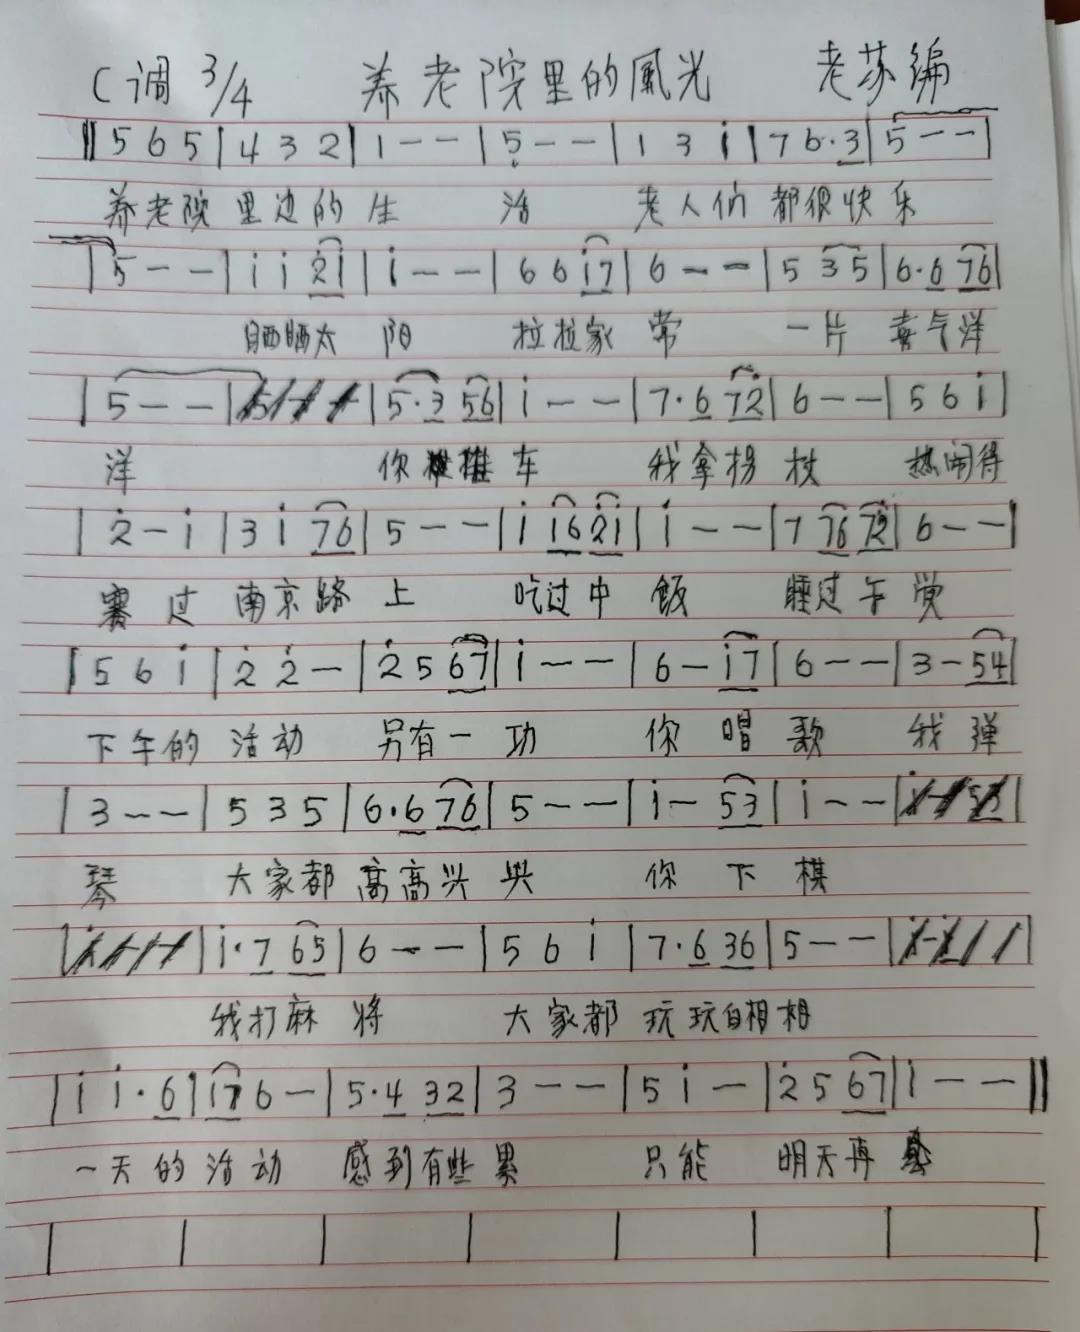 C调 3/4 养老院里的風光 老苏编
‖ 5 6 5 | 4 3 2 | 1 - - | 5̣ - - | 1 3 i | 7 6·3 | 5 - - |
养老院 里边的 生 活 老人们 都很快乐
| 5 - - | i i 2̇i | i - - | 6 6 i7 | 6 - - | 5 35 | 6·6 76 |
晒晒太 阳 拉拉家 常 一片 喜气洋
| 5 - - | | 5·3 56 | i - - | 7·6 72̇ | 6 - - | 5 6 i |
洋 你推推 车 我拿拐 杖 热闹得
| 2̇ - i | 3 i 76 | 5 - - | i i6 2̇i | i - - | 7 76 72̇ | 6 - - |
赛 过 南京路 上 吃过中 飯 睡过午 觉
| 5 6 i | 2̇ 2̇ - | 2̇ 5 67 | i - - | 6 - i7 | 6 - - | 3 - 54 |
下午的 活动 另有一 功 你 唱 歌 我 弹
| 3 - - | 5 3 5 | 6·6 76 | 5 - - | i - 53 | i - - | |
琴 大家都 高高兴 兴 你 下 棋
| | i·7 65 | 6 - - | 5 6 i | 7·6 36 | 5 - - | |
我打麻 将 大家都 玩玩自相 相
| i i·6 | i7 6 - | 5·4 32 | 3 - - | 5 i - | 2̇ 5 67 | i - - ‖
一天的 活动 感到有些 累 只能 明天再